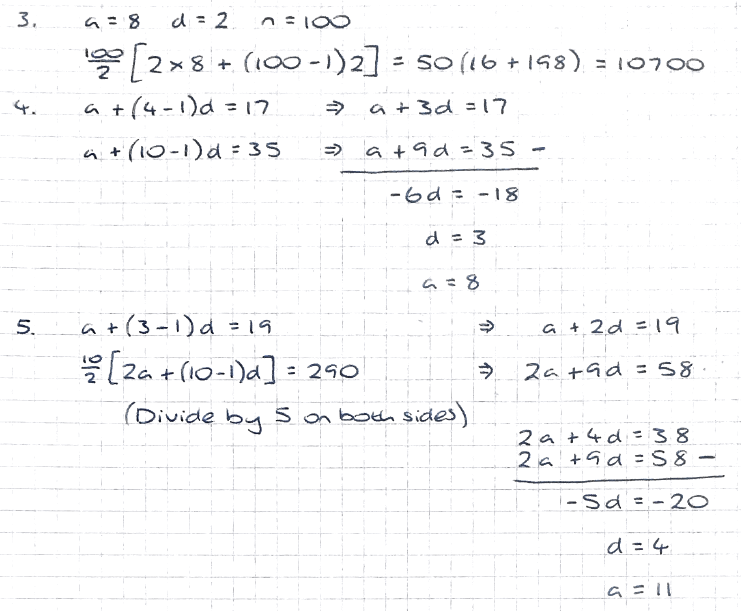 3. a = 8 d = 2 n = 100
100/2 [2 × 8 + (100 - 1)2] = 50(16 + 198) = 10700
4. a + (4 - 1)d = 17 ⇒ a + 3d = 17
a + (10 - 1)d = 35 ⇒ a + 9d = 35 -
-6d = -18
d = 3
a = 8
5. a + (3 - 1)d = 19 ⇒ a + 2d = 19
10/2 [2a + (10 - 1)d] = 290 ⇒ 2a + 9d = 58
(Divide by 5 on both sides)
2a + 4d = 38
2a + 9d = 58 -
-5d = -20
d = 4
a = 11